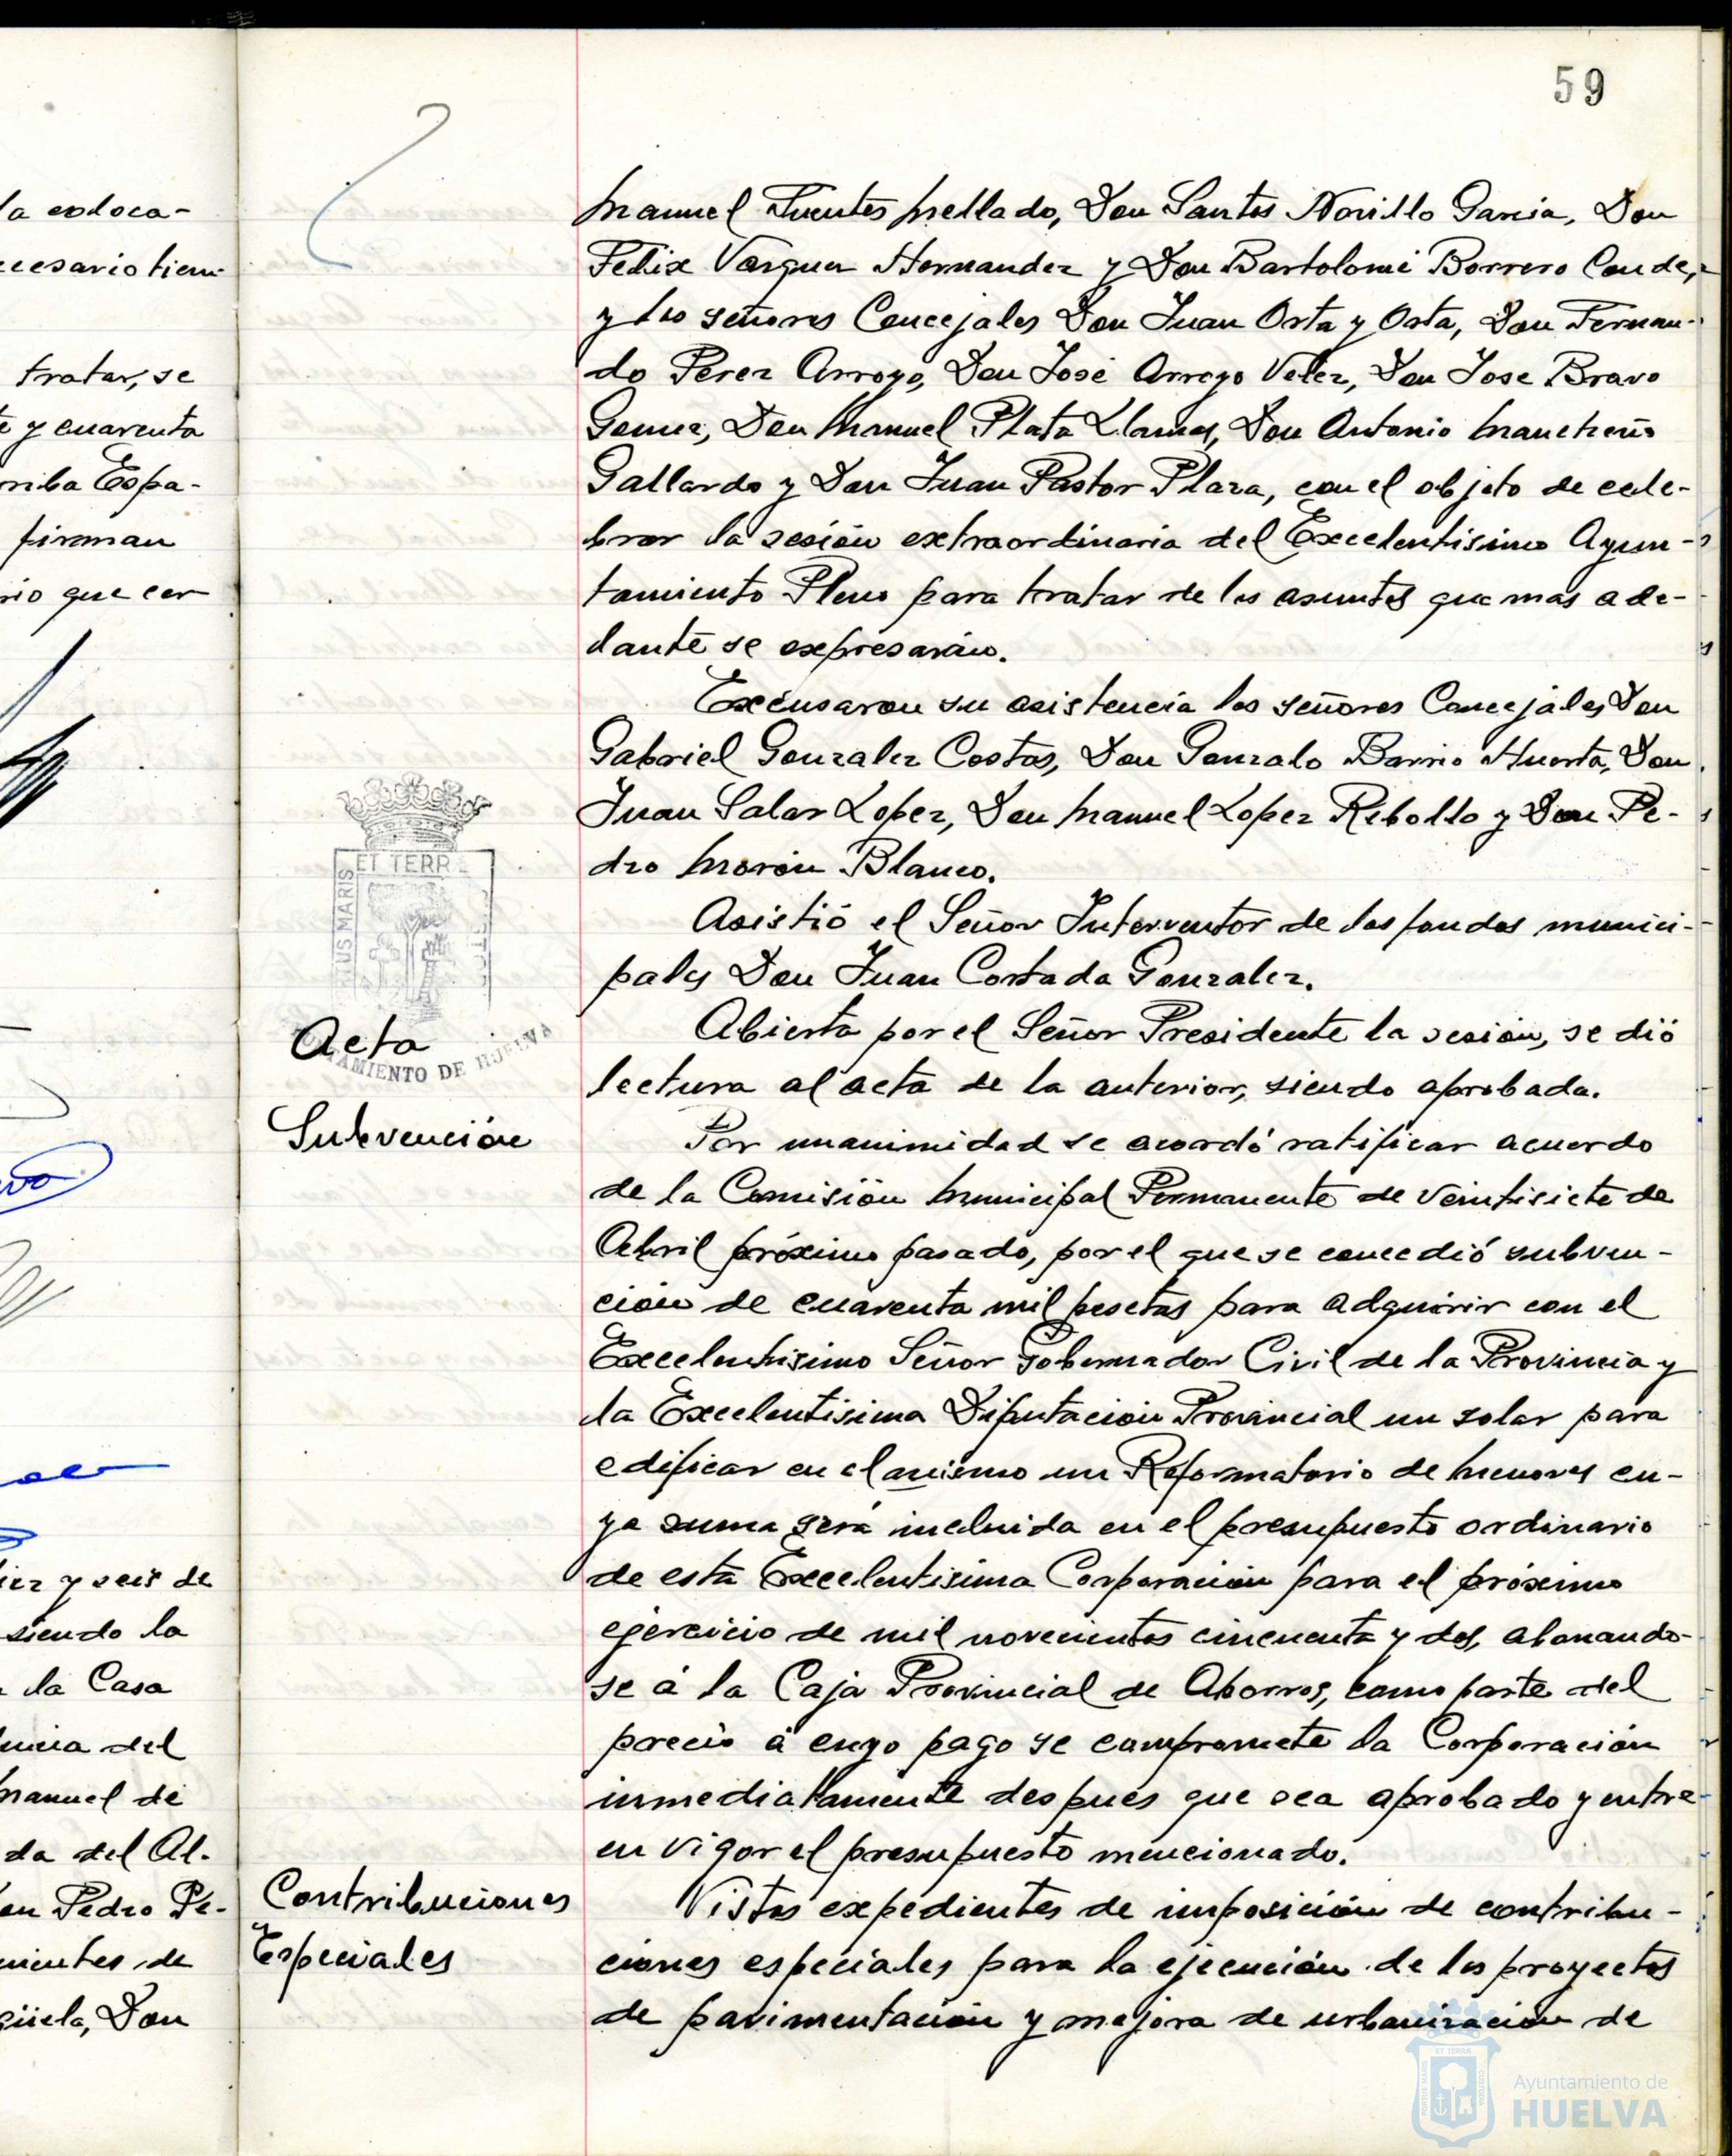 59
la coloca-
cesario tiem-
tratar, se
te y cuarenta
rriba Espa-
firman
rio que cer
iez y seis de
siendo la
a la Casa
dencia del
Manuel de
da del Al-
on Pedro Pé-
nientes de
güela, Don
Manuel Fuentes Mellado, Don Santos Novillo Garcia, Don
Felix Vazquez Hernandez y Don Bartolomé Borrero Conde,
y los señores Concejales Don Juan Orta y Orta, Don Fernan-
do Perez Arroyo, Don José Arroyo Velez, Don Jose Bravo
Gomez, Don Manuel Plata Llamas, Don Antonio Mancheño
Gallardo y Don Juan Pastor Plaza, con el objeto de cele-
brar la sesión extraordinaria del Excelentisimo Ayun-
tamiento Pleno para tratar de los asuntos que mas ade-
lante se expresarán.
Excusaron su asistencia los señores Concejales Don
Gabriel Gonzalez Costas, Don Gonzalo Barrio Huerta, Don
Juan Salas Lopez, Don Manuel Lopez Rebollo y Don Pe-
dro Morón Blanco.
Asistió el Señor Interventor de los fondos munici-
pales Don Juan Cortada Gonzalez.
ET TERR
TUS MARIS
AMIENTO DE HUELVA
Acta
Abierta por el Señor Presidente la sesión, se dió
lectura al acta de la anterior, siendo aprobada.
Subvención
Por unanimidad se acordó ratificar acuerdo
de la Comisión Municipal Permanente de veintisiete de
Abril próximo pasado, por el que se concedió subven-
ción de cuarenta mil pesetas para adquirir con el
Excelentisimo Señor Gobernador Civil de la Provincia y
la Excelentisima Diputación Provincial un solar para
edificar en el mismo un Reformatorio de Menores cu-
ya suma será incluida en el presupuesto ordinario
de esta Excelentisima Corporación para el próximo
ejercicio de mil novecientos cincuenta y dos, abonando-
se á la Caja Provincial de Ahorros, como parte del
precio á cuyo pago se compromete la Corporación
inmediatamente despues que sea aprobado y entre
en vigor el presupuesto mencionado.
Contribuciones
Especiales
Vistos expedientes de imposición de contribu-
ciones especiales para la ejecución de los proyectos
de pavimentación y mejora de urbanización de
Ayuntamiento de
HUELVA